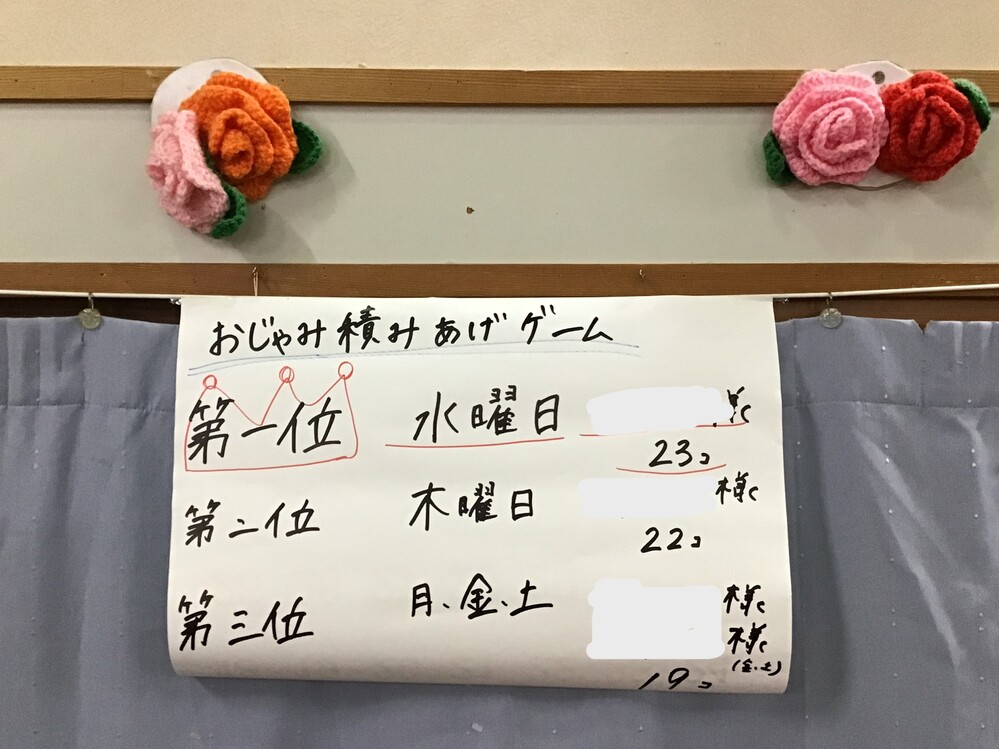 おじゃみ積みあげゲーム
第一位 水曜日 様
23コ
第二位 木曜日 様
22コ
第三位 月、金、土 様
様
(金、土)
19コ